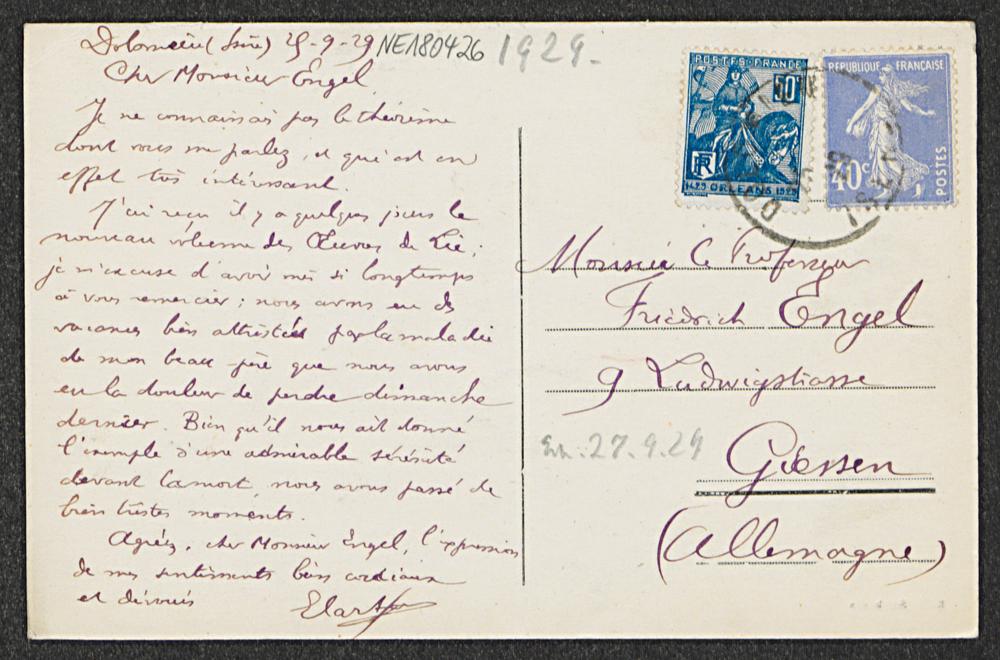 Dolomieu (Isère) 25-9-29
NE180426
1929.
Cher Monsieur Engel,
Je ne connaissais pas le théorème
dont vous me parlez, et qui est en
effet très intéressant.
J'ai reçu il y a quelques jours le
nouveau volume des Œuvres de Lie;
je m'excuse d'avoir mis si longtemps
à vous remercier; nous avons eu des
vacances bien attristées par la maladie
de mon beau-père que nous avons
eu la douleur de perdre dimanche
dernier. Bien qu'il nous ait donné
l'exemple d'une admirable sérénité
devant la mort, nous avons passé de
bien tristes moments.
Agréez, cher Monsieur Engel, l'expression
de mes sentiments bien cordiaux
et dévoués
ECartan
POSTES-FRANCE
50c
RF
1429 ORLEANS 1929
REPUBLIQUE FRANÇAISE
40c
POSTES
Monsieur le Professeur
Friedrich Engel
9 Ludwigstrasse
27.9.29
Giessen
(Allemagne)